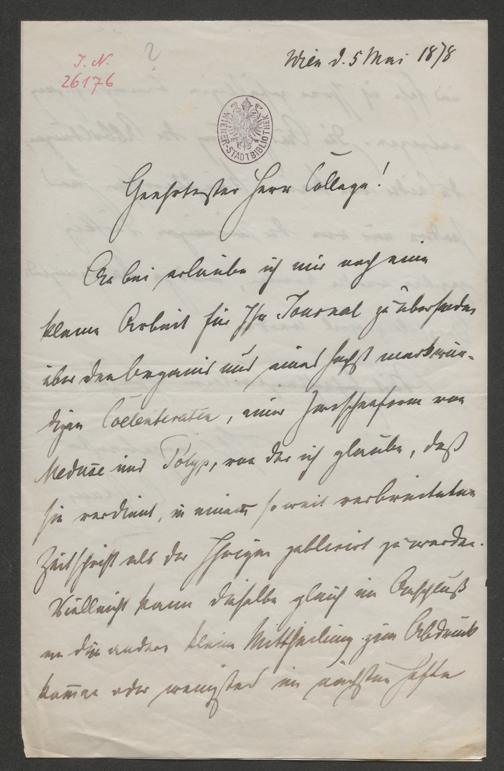 J. N.
26176
?
Wien d. 5 Mai 1878
WIENER-STADTBIBLIOTHEK
Geehrtester Herr College!
Anbei erlaube ich mir noch eine
kleine Arbeit für Ihr Journal zu übersenden
über den Organismus eines höchst merkwür-
digen Coelenteraten, einer Zwischenform von
Meduse und Polyp, von der ich glaube, daß
sie verdient, in einer so weit verbreiteten
Zeitschrift als der Ihrigen publicirt zu werden.
Vielleicht kann dieselbe gleich im Anschluß
an die andere kleine Mittheilung zum Abdruck
kommen oder wenigstens im nächsten Hefte